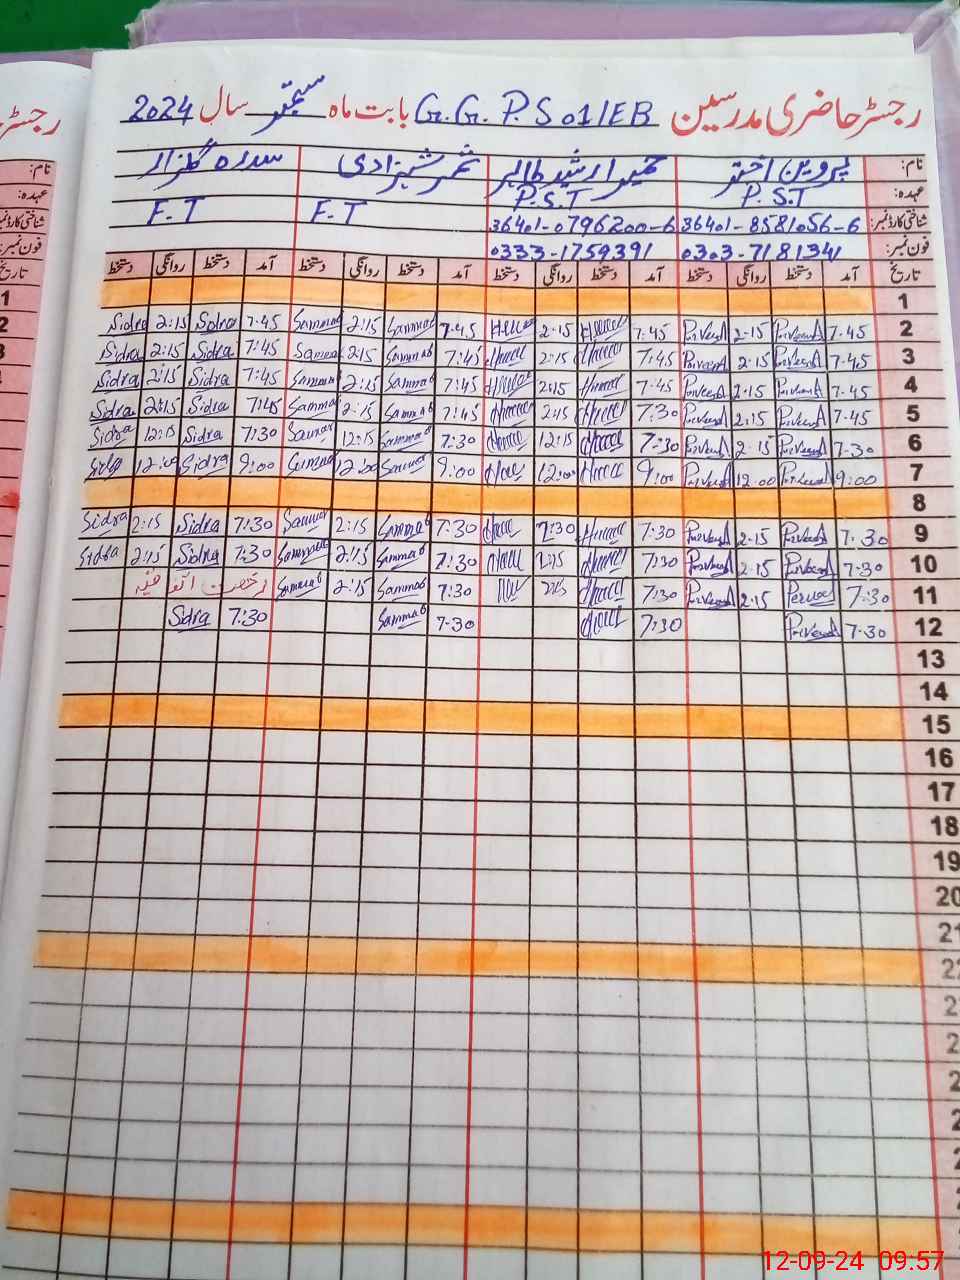 رجسٹر حاضری مدرسین G.G.P.S 01/EB بابت ماہ ستمبر سال 2024
نام: پروین اختر شمر شہزادی سدرہ گلزار
عہدہ: P.S.T P.S.T F.T F.T
شناختی کارڈ نمبر: 36401-8581056-6 36401-0796200-6
فون نمبر: 0303-7181341 0333-1759391
تاریخ آمد دستخط روانگی دستخط آمد دستخط روانگی دستخط آمد دستخط روانگی دستخط آمد دستخط روانگی دستخط
1
2 7-45 Parveen 2-15 Parveen 7:45 2:15 7-45 Sammab 2:15 Sammab 7-45 Sidra 2:15 Sidra
3 7-45 Parveen 2-15 Parveen 7:45 2:15 7:45 Sammab 2:15 Samma 7:45 Sidra 2:15 Sidra
4 7-45 Parveen 2-15 Parveen 7-45 2:15 7:45 Sammab 2:15 Sammab 7:45 Sidra 2:15 Sidra
5 7-45 Parveen 2-15 Parveen 7:30 2:15 7:45 Sammab 2:15 Sammab 7:45 Sidra 2:15 Sidra
6 7-30 Parveen 2-15 Parveen 7:30 12:15 7:30 Sammab 12:15 7:30 Sidra 12:15 Sidra
7 9:00 Parveen 12-00 Parveen 9:00 12:00 9:00 12:00 9:00 Sidra 12:00
8
9 7-30 Parveen 2-15 Parveen 7:30 2:30 7:30 Sammab 2:15 7:30 Sidra 2:15 Sidra
10 7-30 Parveen 2:15 Parveen 7:30 2:15 7:30 Sammab 2:15 Sammab 7:30 Sidra 2:15 Sidra
11 7:30 Parveen 2:15 Parveen 7:30 7:30 Sammab 2:15 Sammab رخصت اتفاقیہ
12 7-30 Parveen 7:30 7-30 Sammab 7:30 Sidra
13
14
15
16
17
18
19
20
21
22
12-09-24 09:57